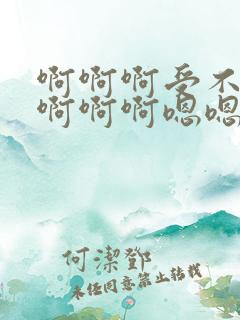 啊啊啊受不
啊啊啊嗯嗯
何潔鄧
未经同意禁止转载